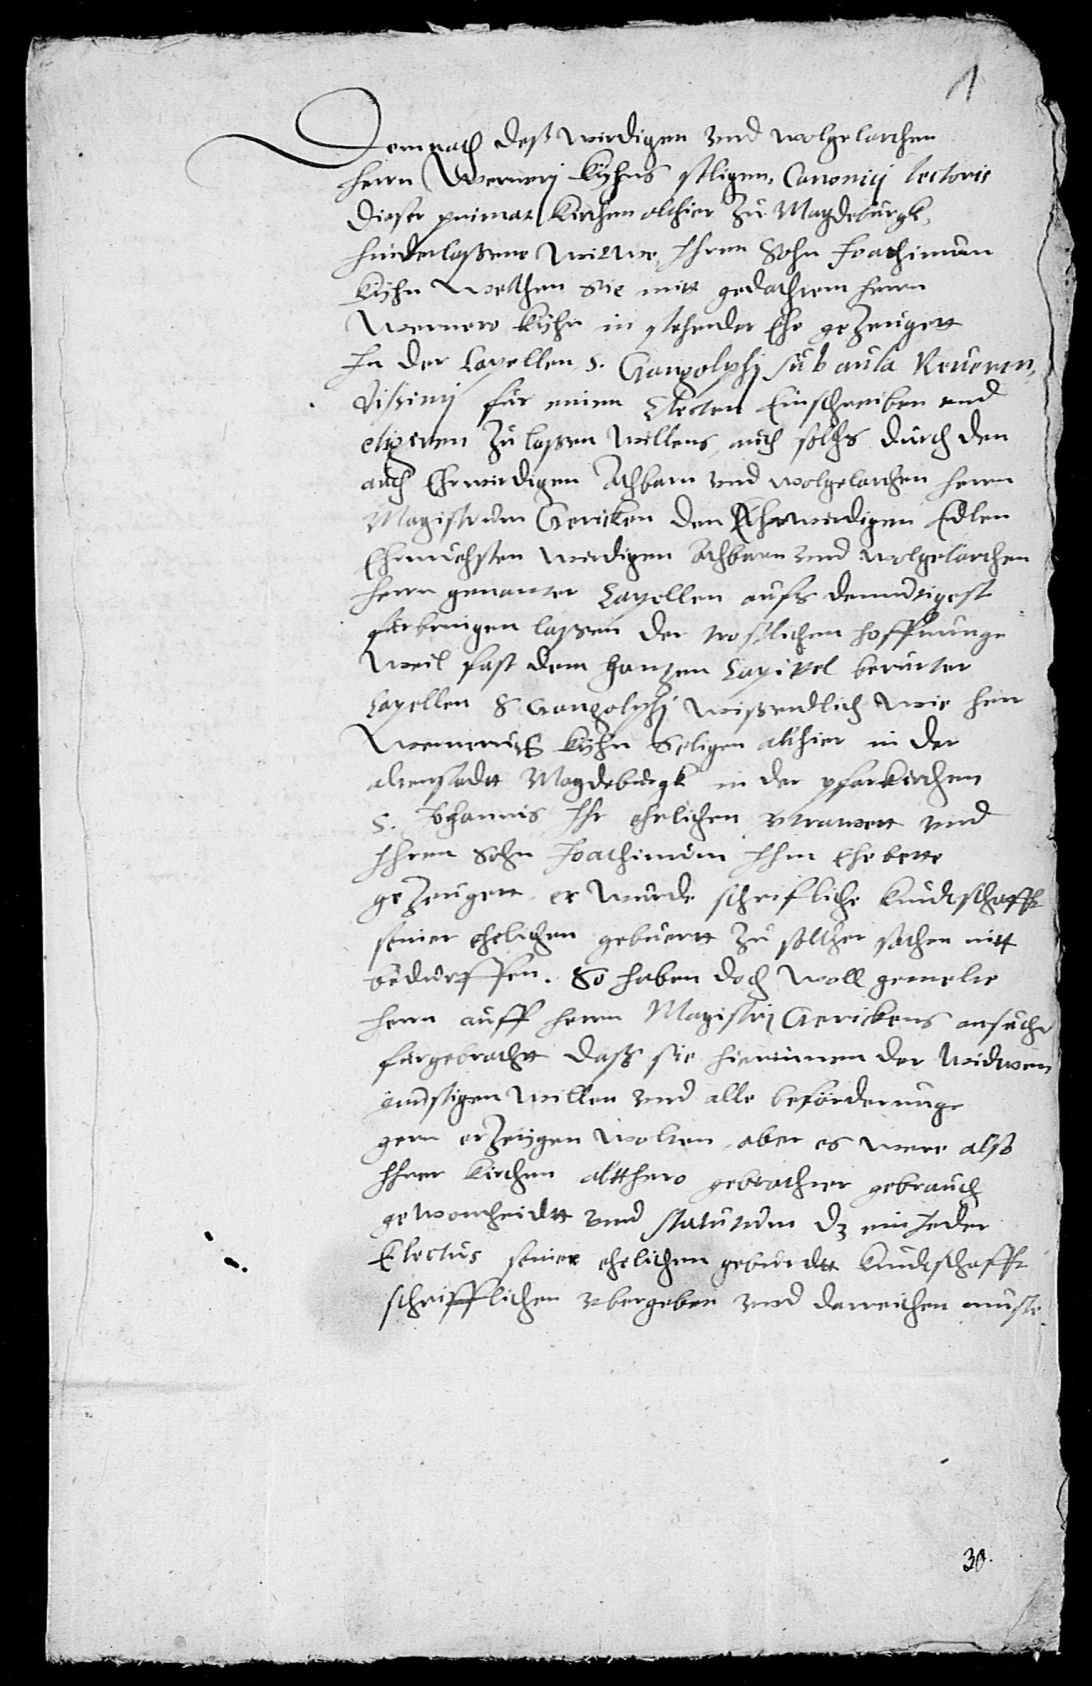 1
Demnach deß wirdigen vnd wolgelarthen
herrn Wernerj Kÿhns seligen, Canonicj lectoris
dieser primat Kirchen alhier zu Magdeburgk,
hinderlaßene witwe, Ihren Sohn Joachimum
Kÿhn welchen Sie mitt gedachtem herrn
Wernero Kÿhn in stehender Ehe gezeugett
In der Capellen S. Gangolphj sub aula Reueren-
dißimj für einen Electen Einschreiben vnd
eligiren zu laßen willens, auch solchs durch den
auch Ehrwirdigen Achbarn vnd wolgelarthen herrn
Magistrum Gericken den Ehrwirdigen Edlen
Ehrnuhesten wirdigen Achbarn vnd wolgelarthen
herrn genanter Capellen aufs demutigest
fürbringen laßen der trostlichen hoffnunge
Weil fast dem gantzen Capittel berurter
Capellen S Gangolphj wißendlich wie herr
Wernerus Kÿhn Seligen alhier in der
altenstadtt Magdeburgk in der pfarkirchen
S. Johannis Ihr ehelichen vtrawett vnd
Ihren Sohn Joachimum Ihm Ehebette
gezeugett, er wurde schriftliche Kundtschafft
seiner ehelichen gebuertt zu solcher sachen nitt
bedurffen. So haben doch woll gemelte
herrn auff herrn Magistrj Gerickens ansuchen
fürgebrachtt daß sie hierinnen der Widwen
günstigen willen vnd alle beförderunge
gern erzeigen wolten, aber es were also
Ihrer Kirchen altthero gebrachter gebrauch
gewonheidtt vnd statutum dz ein Jeder
Electus seiner ehelichen geburdtt Kundtschafft
schrifftlichen vbergeben vnd dareichen muste.
30.